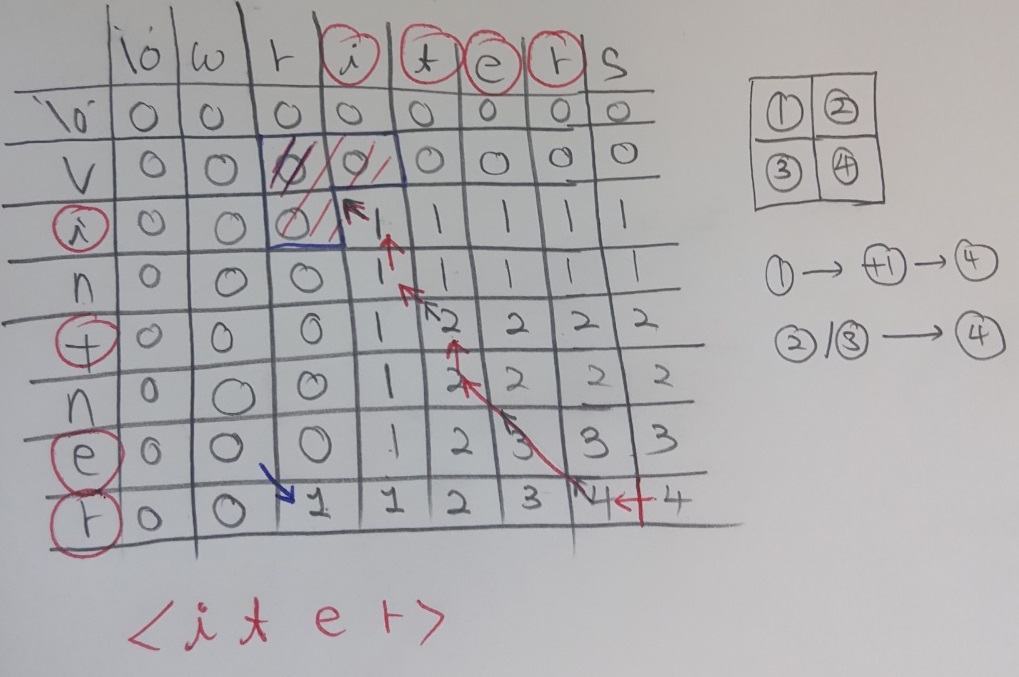 \0 w r i t e r s
\0 0 0 0 0 0 0 0 0
v 0 0 0 0 0 0 0 0
i 0 0 0 1 1 1 1 1
n 0 0 0 1 1 1 1 1
t 0 0 0 1 2 2 2 2
n 0 0 0 1 2 2 2 2
e 0 0 0 1 2 3 3 3
r 0 0 1 1 2 3 4 4
① ②
③ ④
① → +1 → ④
② / ③ → ④
<i t e r>